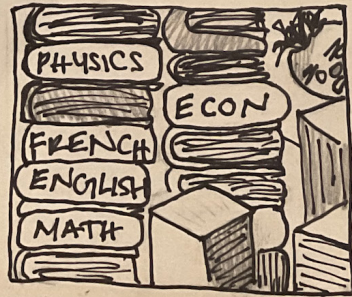 PHYSICS
FRENCH
ENGLISH
MATH
ECON